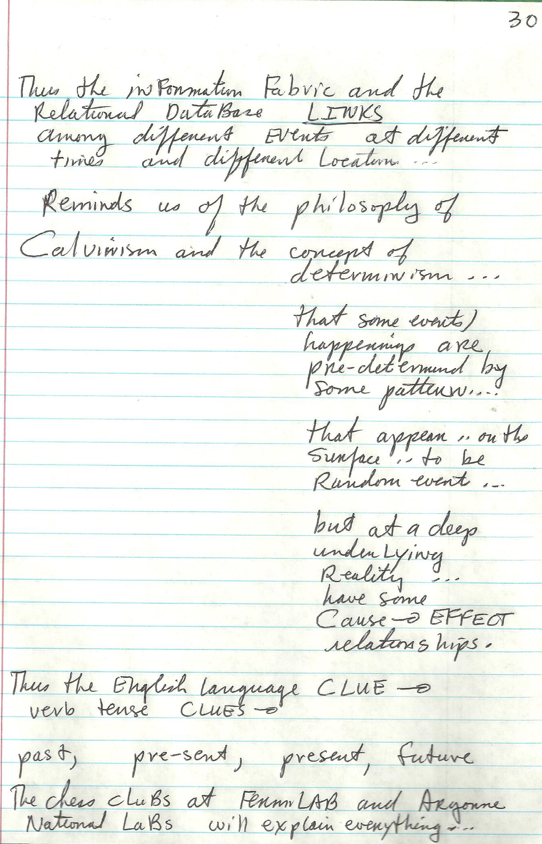 30
Thus the inFormation Fabric and the
Relational DataBase LINKS
among different EVENTS at different
times and different Location ...
Reminds us of the philosophy of
Calvinism and the concept of
determinism ...
that some events)
happenings are
pre-determined by
some pattern....
that appear .. on the
Surface .. to be
Random event ...
but at a deep
underLying
Reality ...
have some
Cause → EFFECT
relationships.
Thus the English Language CLUE →
verb tense CLUES →
past, pre-sent, present, future
The chess cluBs at FermiLAB and Argonne
National LaBs will explain everything...